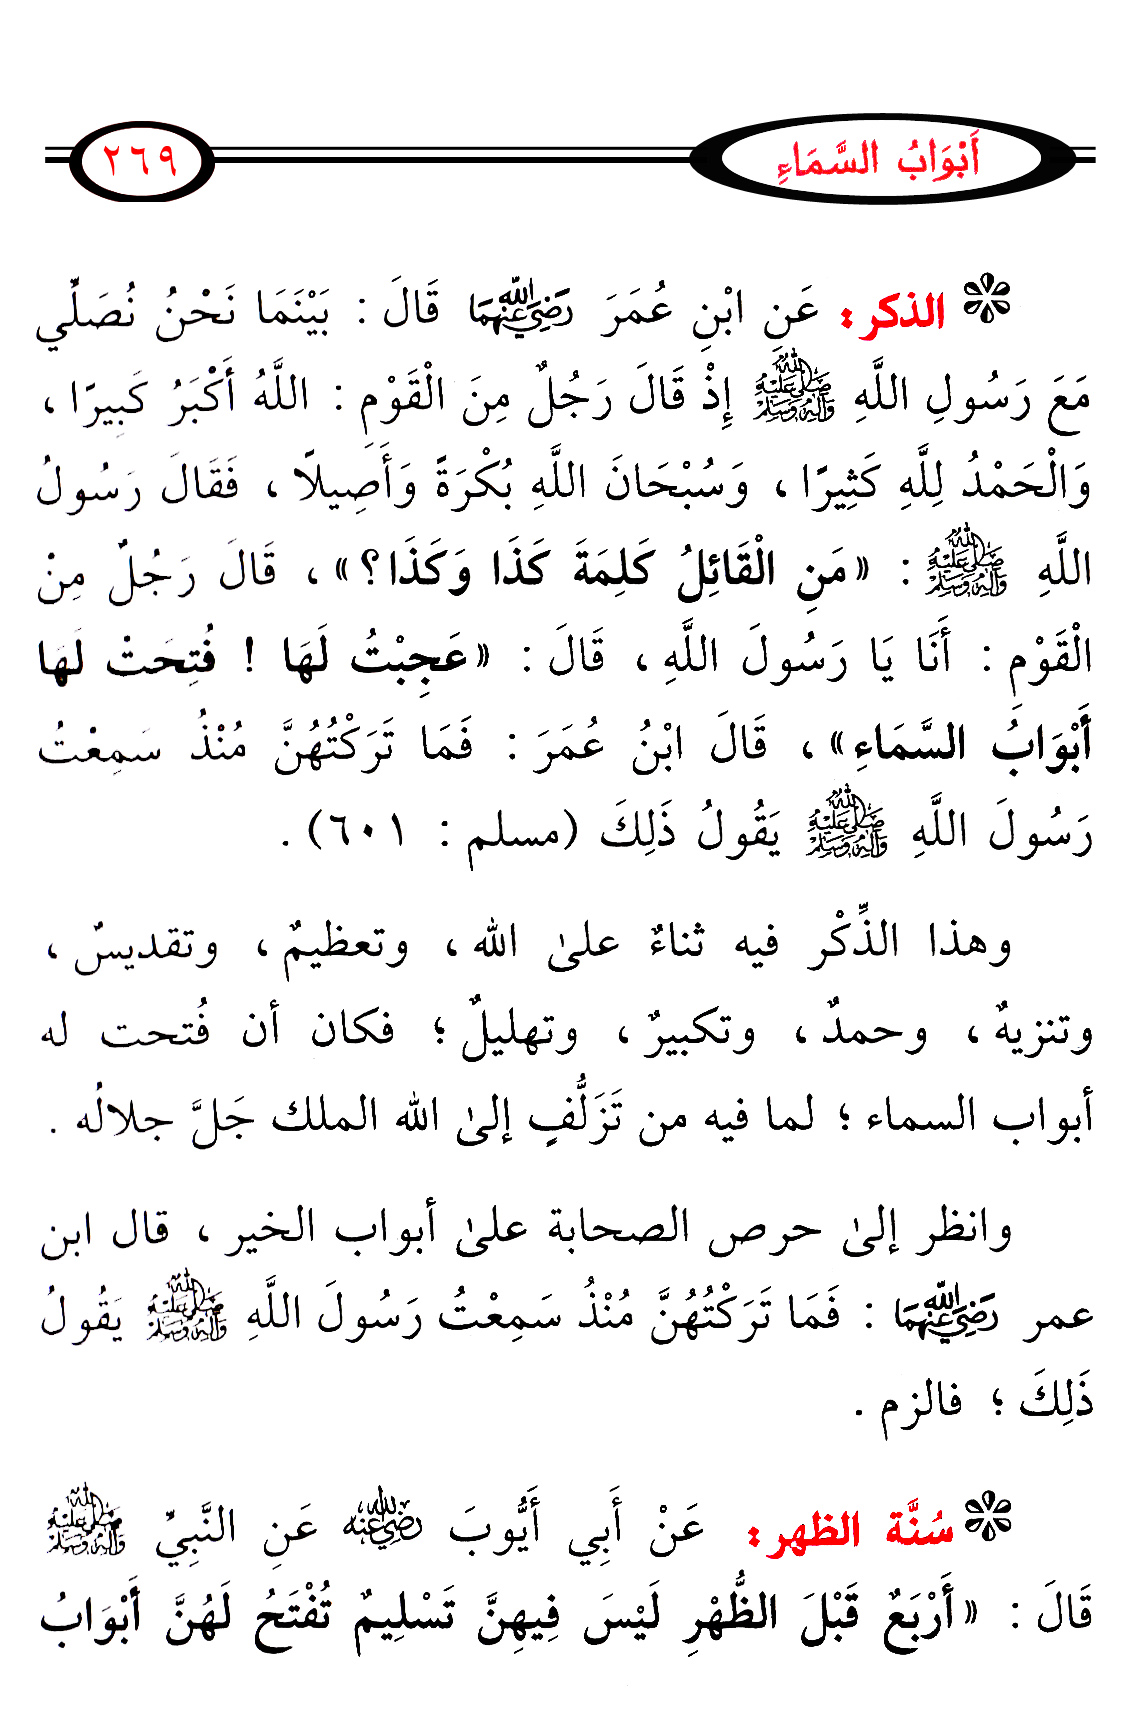 أَبْوَابُ السَّمَاءِ ٢٦٩
الذكر: عَنِ ابْنِ عُمَرَ رَضِيَ اللَّهُ عَنْهُمَا قَالَ : بَيْنَمَا نَحْنُ نُصَلِّي
مَعَ رَسُولِ اللَّهِ ﷺ إِذْ قَالَ رَجُلٌ مِنَ الْقَوْمِ : اللَّهُ أَكْبَرُ كَبِيرًا ،
وَالْحَمْدُ لِلَّهِ كَثِيرًا ، وَسُبْحَانَ اللَّهِ بُكْرَةً وَأَصِيلاً ، فَقَالَ رَسُولُ
اللَّهِ ﷺ : «مَنِ الْقَائِلُ كَلِمَةَ كَذَا وَكَذَا؟» ، قَالَ رَجُلٌ مِنْ
الْقَوْمِ : أَنَا يَا رَسُولَ اللَّهِ ، قَالَ : «عَجِبْتُ لَهَا ! فُتِحَتْ لَهَا
أَبْوَابُ السَّمَاءِ» ، قَالَ ابْنُ عُمَرَ : فَمَا تَرَكْتُهُنَّ مُنْذُ سَمِعْتُ
رَسُولَ اللَّهِ ﷺ يَقُولُ ذَلِكَ (مسلم : ٦٠١) .
وهذا الذِّكْر فيه ثناءٌ علىٰ الله ، وتعظيمٌ ، وتقديسٌ ،
وتنزيهٌ ، وحمدٌ ، وتكبيرٌ ، وتهليلٌ ؛ فكان أن فُتحت له
أبواب السماء ؛ لما فيه من تَزَلُّفٍ إلىٰ الله الملك جَلَّ جلالُه .
وانظر إلىٰ حرص الصحابة علىٰ أبواب الخير ، قال ابن
عمر رَضِيَ اللَّهُ عَنْهُمَا : فَمَا تَرَكْتُهُنَّ مُنْذُ سَمِعْتُ رَسُولَ اللَّهِ ﷺ يَقُولُ
ذَلِكَ ؛ فالزم .
سُنَّة الظهر: عَنْ أَبِي أَيُّوبَ رَضِيَ اللَّهُ عَنْهُ عَنِ النَّبِيِّ ﷺ
قَالَ : «أَرْبَعٌ قَبْلَ الظُّهْرِ لَيْسَ فِيهِنَّ تَسْلِيمٌ تُفْتَحُ لَهُنَّ أَبْوَابُ